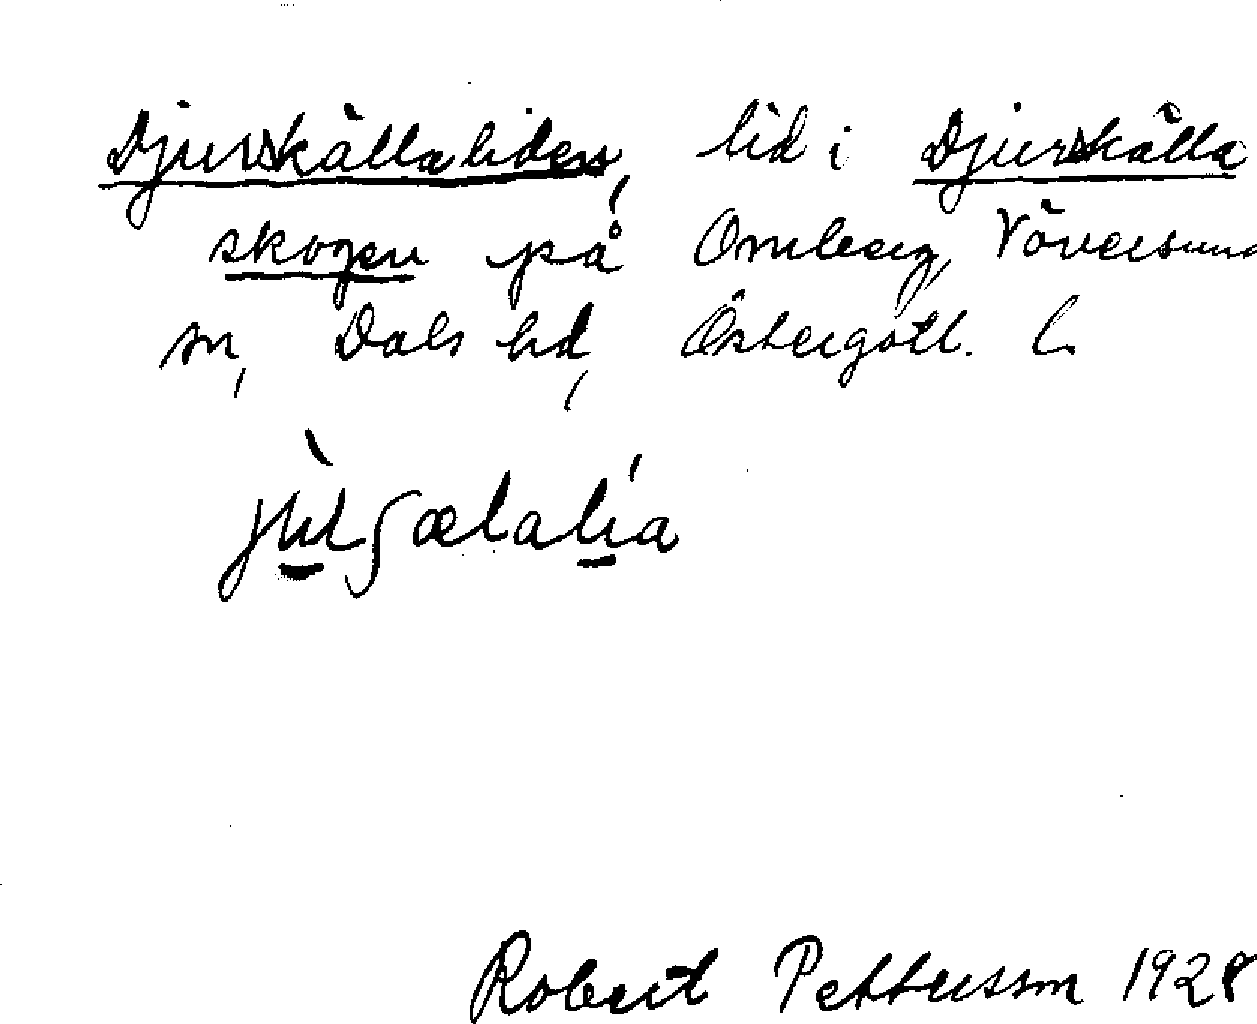 Djurskällaliden, lid i Djurskälla
skogen på Omberg, Väversund
sn, Dals hd, Östergötl. l.
Robert Pettersson 1928